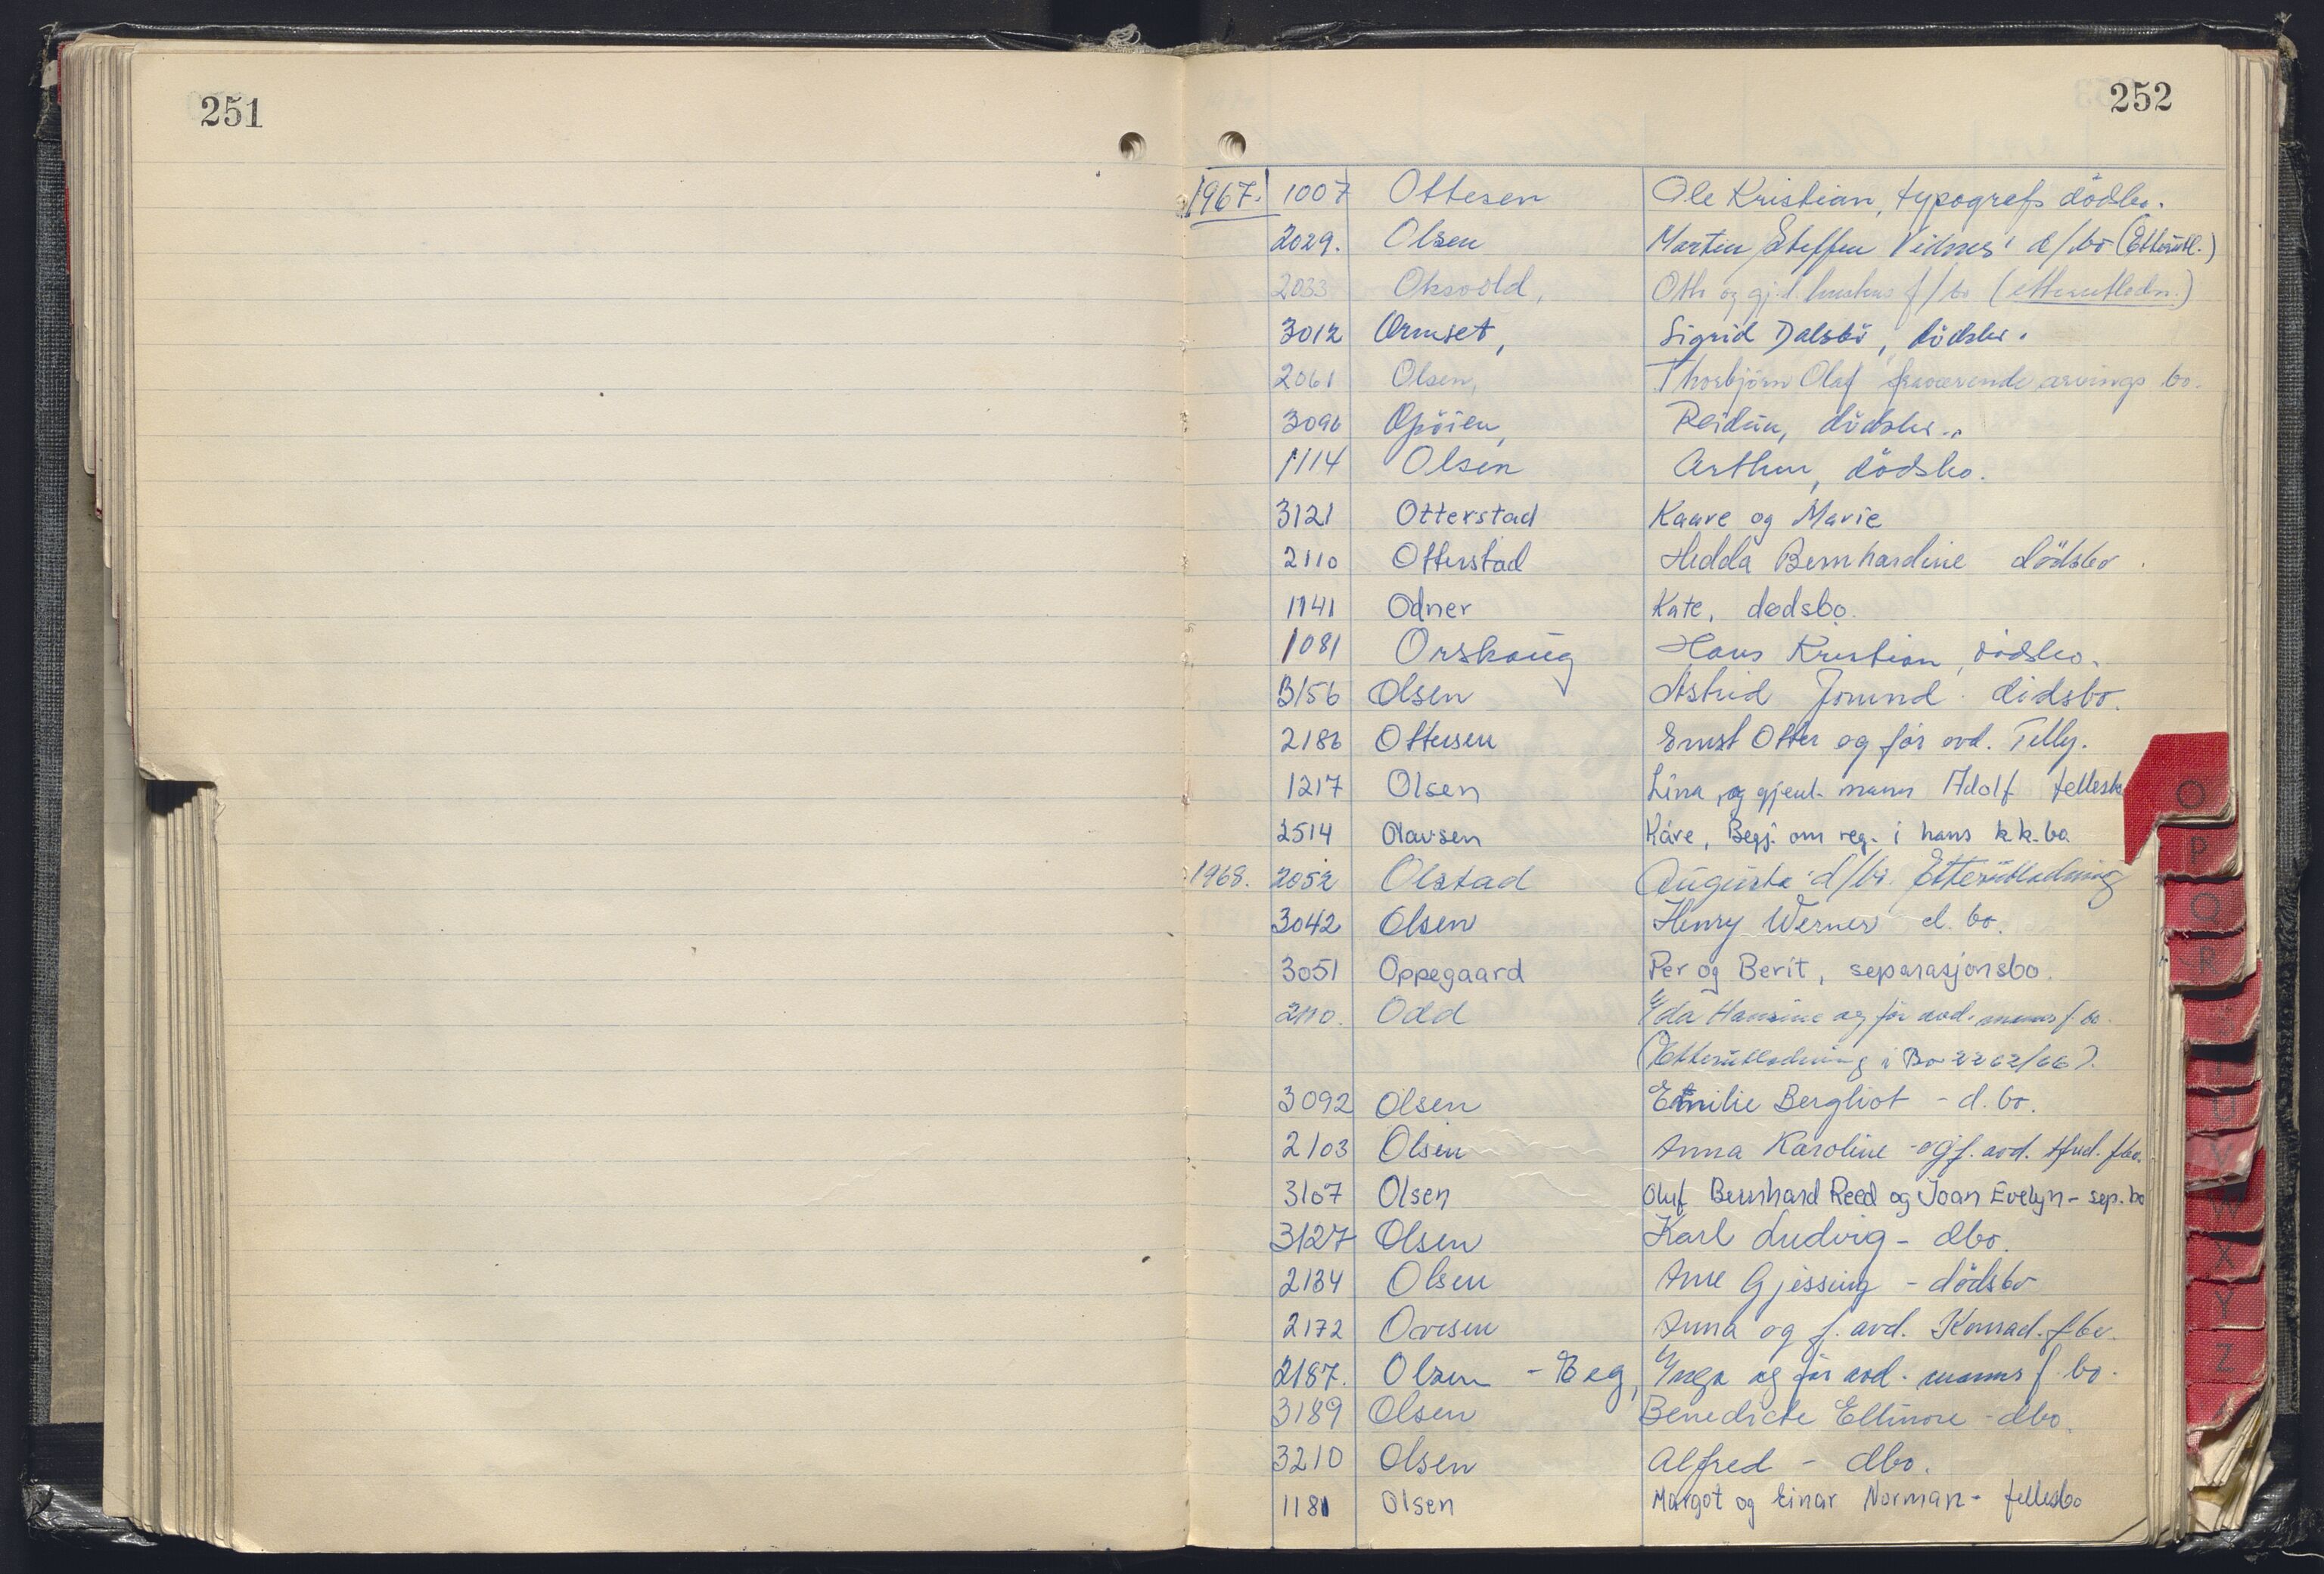 251
252
1967. 1007 Ottesen Ole Kristian, typografs dödsbo.
2029. Olsen Martin Steffen Vidnes' d/bo (Etterutl.)
2033 Oksvold, Otto og gj.l. hustrus f/bo (etterutlodn.)
3012 Ormset, Sigrid Dalsbö, dödsbo.
2061 Olsen, Thorbjörn Olaf fraværende arvings bo.
3096 Opöien, Reidun, dödsbo.
1114 Olsen Arthur, dödsbo.
3121 Otterstad Kaare og Marie
2110 Otterstad Hedda Bernhardine dödsbo.
1141 Odner Kate, dødsbo.
1081 Orskaug Hans Kristian, dödsbo.
3156 Olsen Astrid Jorund. dödsbo.
2186 Ottersen Ernst Otter og før avd. Telly.
1217 Olsen Lina, og gjenl. mann Adolf fellesb
2514 Olavsen Kåre, Begj. om reg. i hans k.k.bo
1968. 2052 Olstad Augusta d/bo. Etterutlodning
3042 Olsen Henry Werner d. bo.
3051 Oppegaard Per og Berit, separasjonsbo.
2110. Odd Yda Hansine og før avd. manns f. bo.
(Etterutlodning i Bo 2262/66).
3092 Olsen Emilie Bergliot - d. bo.
2103 Olsen Anna Karoline - og f. avd. f.bo.
3107 Olsen Oluf Bernhard Reed og Joan Evelyn - sep. bo
3127 Olsen Karl Ludvig - dbo.
2134 Olsen Ane Gjessing - dödsbo
2172 Ovesen Anna og f. avd. Konrad. fbo.
2187. Olsen - Eeg, Ynga og før avd. manns f. bo.
3189 Olsen Benedicte Ellinore - dbo.
3210 Olsen Alfred - dbo.
1181 Olsen Margot og Einar Norman - fellesbo
O
P
Q
R
T
U
V
W
X
Y
Z